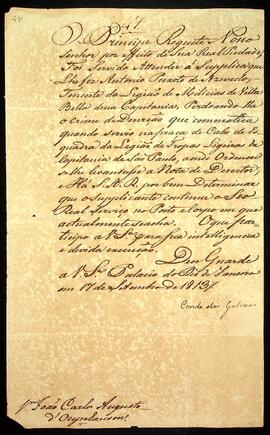 O Principe Regente Nosso
Senhor por effeito de Sua Real Piedade,
Foi Servido Attender á Supplica que
Lhe fez Antonio Peixoto de Azevedo,
Tenente da Legião de Milicias de Villa
Bella dessa Capitania, Perdoando-lhe
o crime de Deserção que commettêra
quando servio na praça de Cabo de Es-
quadra da Legião de Tropas Ligeiras da
Capitania de São Paulo, aonde Ordenou
se lhe levantasse a Nota de Desertor;
e Há S. A. R. por bem Determinar
que o Supplicante continue o Seo
Real Serviço no Posto e Corpo em que
actualmente se acha: O que par-
ticipo a V. Sa. para sua intelligencia
e devida execução.
Deos Guarde
a V. Sa. Palacio do Rio de Janeiro
em 17 de Setembro de 1813
Conde das Galveas
Sr. João Carlos Augusto
d'Oeynhausen